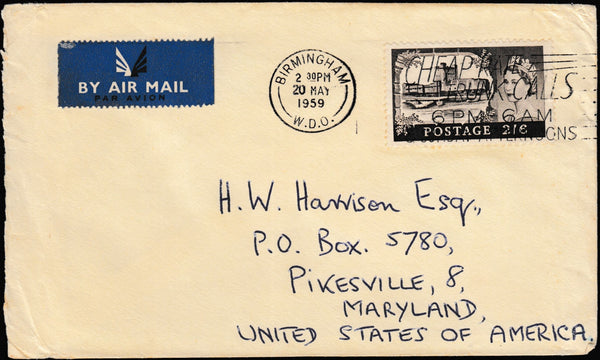 BY AIR MAIL
PAR AVION
BIRMINGHAM
2 30PM
20 MAY
1959
W.D.O.
CHEAP RATE
TRUNK CALLS
6 PM - 6 AM
AFTERNOONS
POSTAGE 2/6
H.W. Harrison Esq.,
P.O. Box. 5780,
PIKESVILLE, 8,
MARYLAND,
UNITED STATES OF AMERICA.